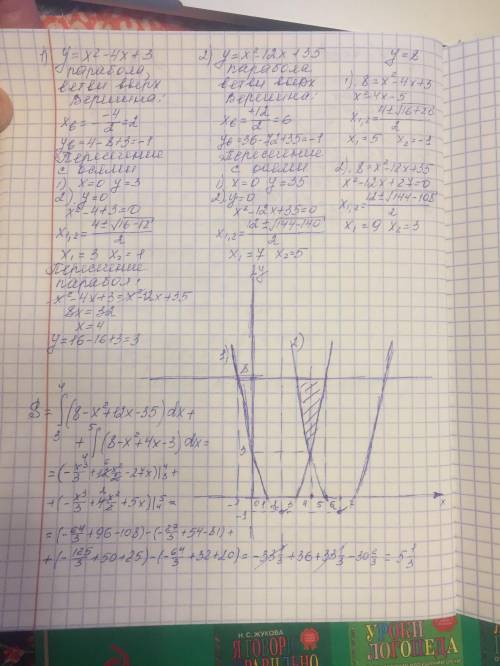 1) y=x²-4x+3
парабола,
ветви вверх
Вершина:
xв=-\frac{-4}{2}=2
yв=4-8+3=-1
Пересечение
с осями
1) x=0 y=3
2) y=0
x²-4+3=0
x₁,₂=\frac{4±√16-12}{2}
x₁=3 x₂=1
Пересечение
парабол:
x²-4x+3=x²-12x+35
8x=32
x=4
y=16-16+3=3
2) y=x²-12x+35
парабола
ветви вверх
Вершина:
xв=\frac{+12}{2}=6
yв=36-72+35=-1
Пересечение
с осями
1) x=0 y=35
2) y=0
x²-12x+35=0
x₁,₂=\frac{12±√144-140}{2}
x₁=7 x₂=5
y=8
1) 8=x²-4x+3
x²-4x-5
x₁,₂=\frac{4±√16+20}{2}
x₁=5 x₂=-1
2) 8=x²-12x+35
x²-12x+27=0
x₁,₂=\frac{12±√144-108}{2}
x₁=9 x₂=3
y
1)
2)
8
3
-1 0 1 2 3 4 5 6 7 x
S=∫₃⁴(8-x²+12x-35)dx+
+∫₄⁵(8-x²+4x-3)dx=
=(-\frac{x³}{3}+\frac{12x²}{2}-27x)|₃⁴+
+(-\frac{x³}{3}+\frac{4x²}{2}+5x)|₄⁵=
=(-\frac{64}{3}+96-108)-(-\frac{27}{3}+54-81)+
+(-\frac{125}{3}+50+25)-(-\frac{64}{3}+32+20)=-33\frac{1}{3}+36+33\frac{1}{3}-30\frac{2}{3}=5\frac{1}{3}
Н. С. ЖУКОВА
УРОКИ
ЛОГОПЕДА